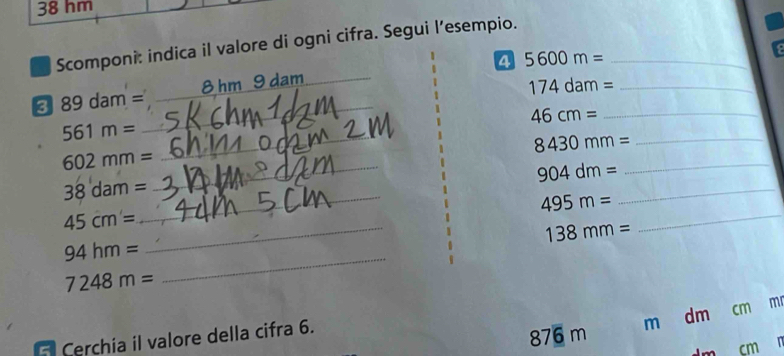 38 hm
Scomponi: indica il valore di ogni cifra. Segui l'esempio.
3 89 dam = 8 hm 9 dam
561 m = 5K 6hm 1dam
602 mm = 6hm 0dam 2m
38 dam = 3hm 8dam
45 cm = 4dm 5cm
94 hm =
7248 m =
4 5600 m =
174 dam =
46 cm =
8430 mm =
904 dm =
495 m =
138 mm =
5 Cerchia il valore della cifra 6.
876 m m dm cm
cm